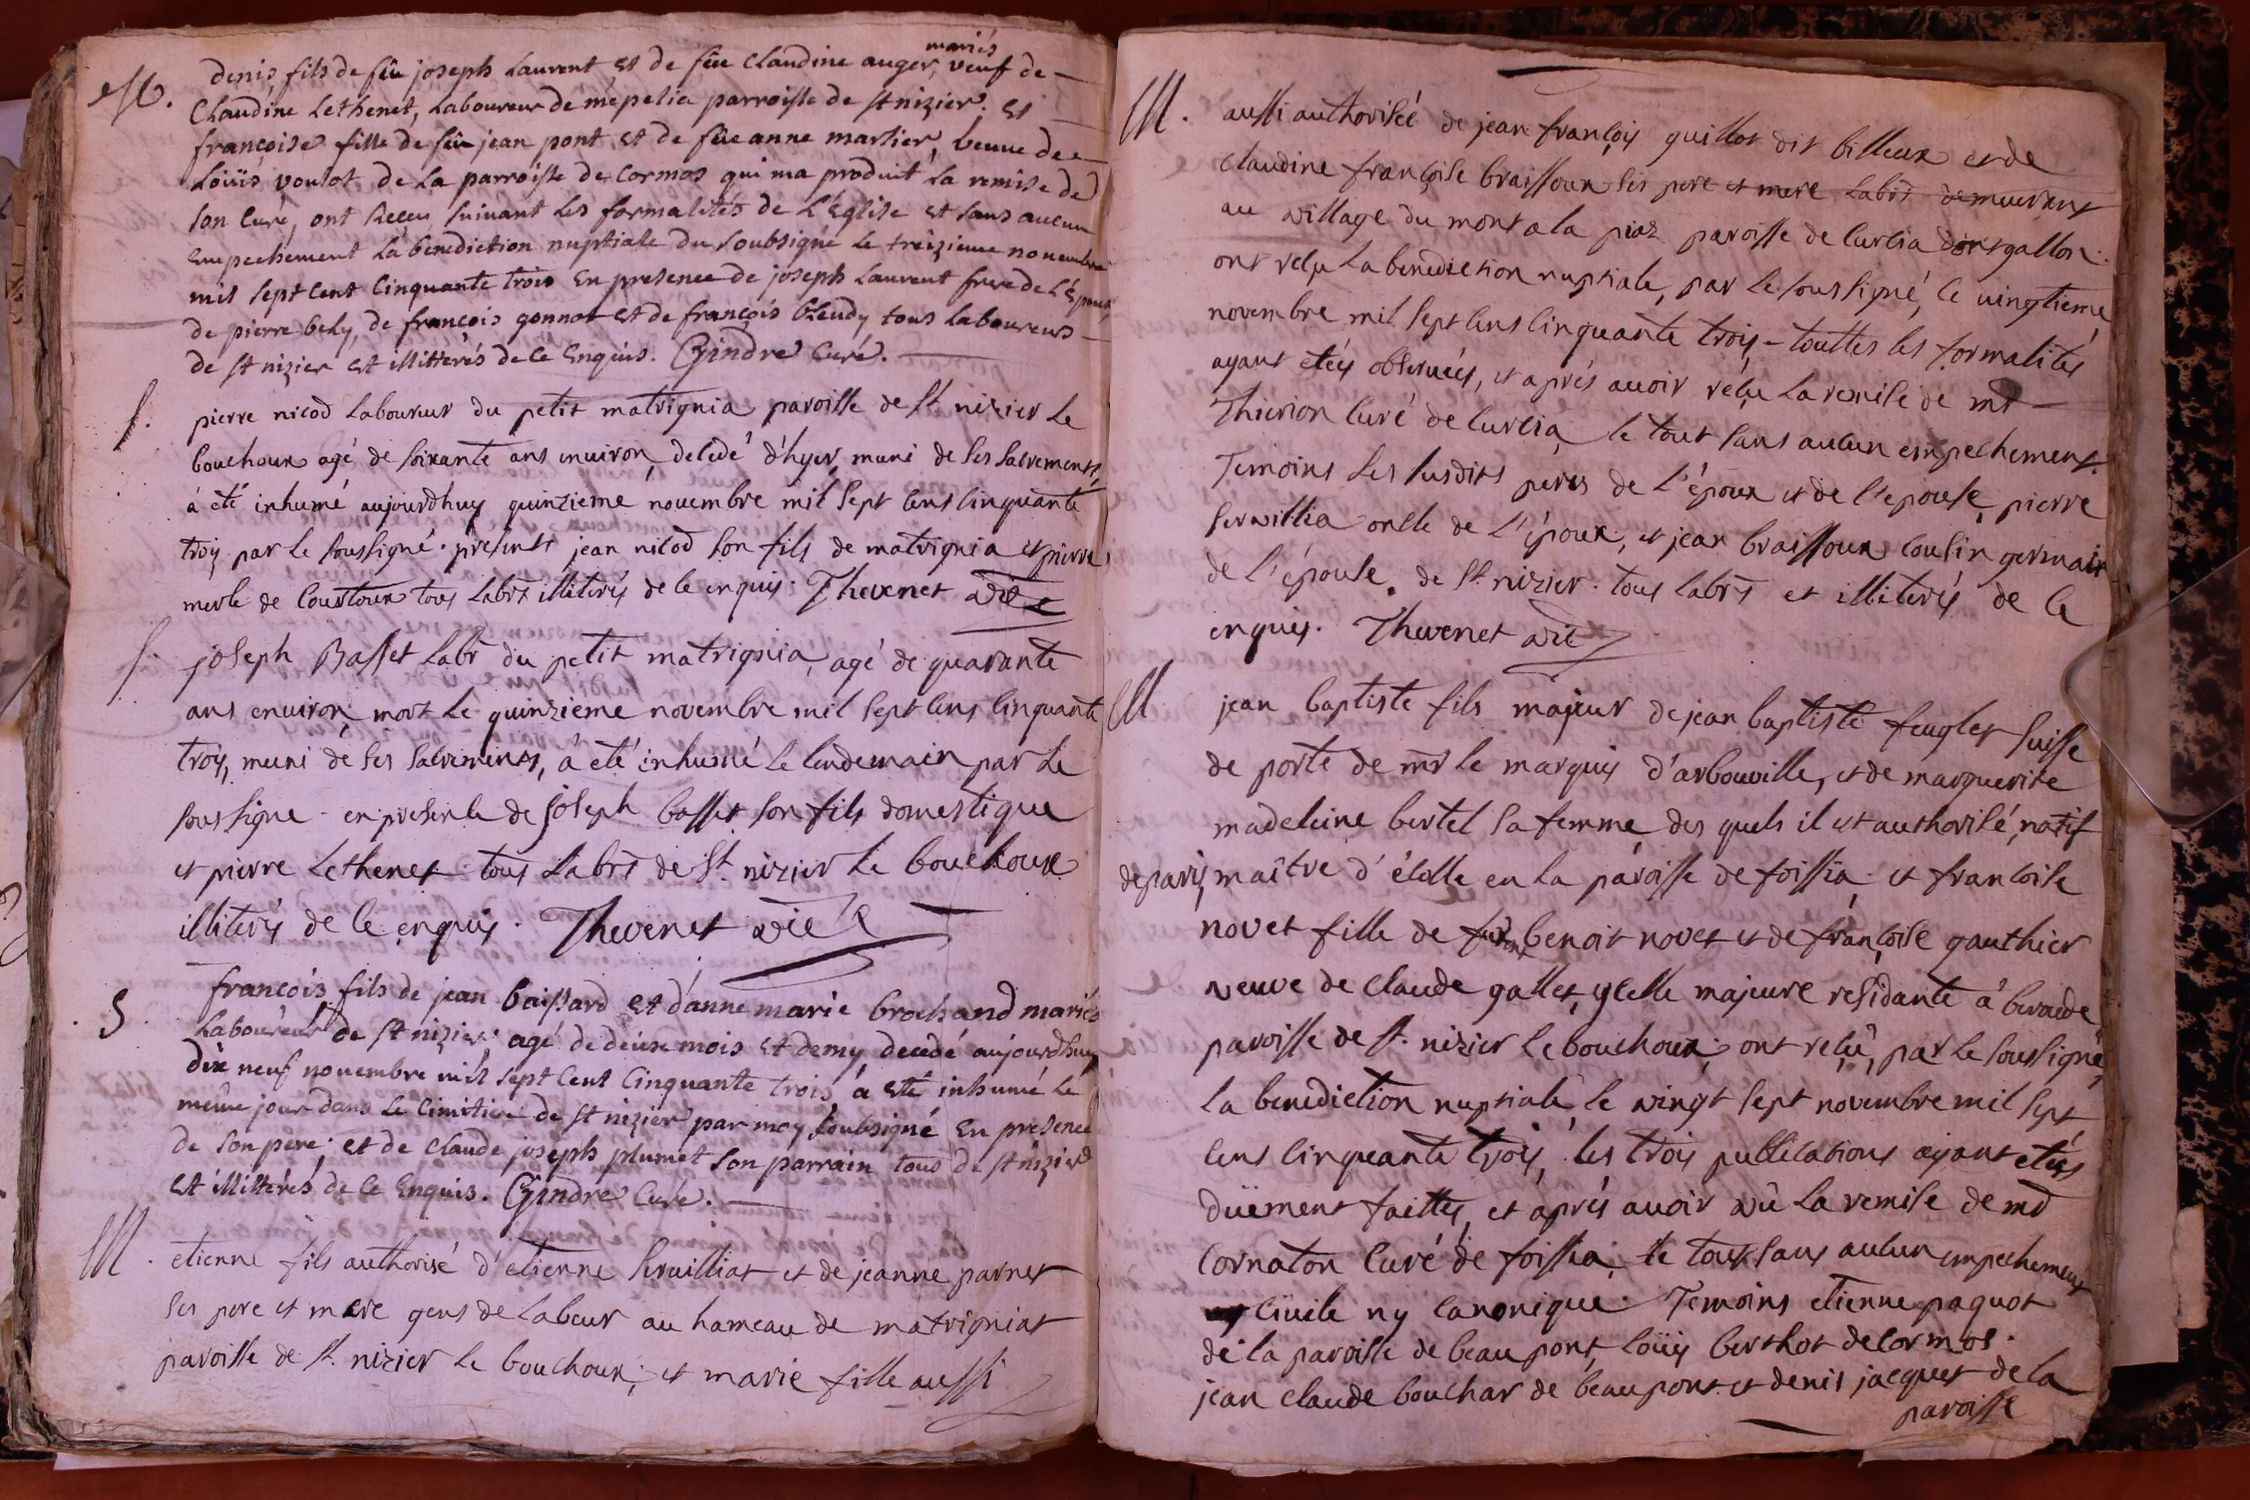 mariés
M. denis fils de feu joseph Laurent et de feüe Claudine auger, veuf de
Claudine Lethenet, Laboureur de mépelia parroisse de st nizier. Et
françoise fille de feu jean pont et de feüe anne marlier, veuve de
Loüis voulot de la parroisse de Cormos qui ma produit la remise de
son Curé, ont Receu suivant les formalités de L'Église et sans aucun
Empechement la benediction nuptiale du soubsigné le treizieme novembre
mil sept Cent Cinquante trois En presence de joseph Laurent frere de L'Époux,
de pierre bely, de françois gonnot et de françois bleudy tous Laboureurs
de st nizier et illitterés de Ce Enquis. Gindre Curé.
S. pierre nicod Laboureur du petit matrignia paroisse de St nizier le
bouchoux agé de soixante ans environ, decedé d'hyer muni de ses sacrements,
à été inhumé aujourdhuy quinzieme novembre mil sept cens cinquante
trois par le soussigné. présents jean nicod son fils de matrignia et pierre
merle de Coustoux tous labrs illiterés de ce enquis. Thevenet vic
S. joseph Basset labr du petit matrignia, agé de quarante
ans environ, mort le quinzieme novembre mil sept cens cinquante
trois, muni de ses sacrements, à été inhumé le lendemain par le
soussigné en presence de joseph basset son fils domestique
et pierre Lethenet tous labrs de St nizier le bouchoux
illiterés de ce enquis. Thevenet vic
S. françois fils de jean baissard et d'anne marie brochand mariés
Laboureur de st nizier agé de deux mois et demy decedé aujourdhuy
dix neuf novembre mil sept Cent Cinquante trois à eté inhumé le
même jour dans le Cimitiere de st nizier par moy soubsigné En présence
de son père, et de Claude joseph plumet son parrain tous de st nizier
et illitterés de Ce Enquis. Gindre Curé.
M. etienne fils authorisé d'etienne servilliat et de jeanne parnet
ses pere et mere gens de labeur au hameau de matrigniat
paroisse de st. nizier le bouchoux; et marie fille aussi
M. aussi authorisée de jean françois guillot dit billeux et de
claudine françoise braissoux ses pere et mere labrs demeurant
au village du mont a la piaz paroisse de curcia dontgallon
ont reçu la benediction nuptiale, par le soussigné, le vingtieme
novembre mil sept cens cinquante trois - touttes les formalités
ayant étéés observées, et aprés avoir reçu la remise de mr
Thierion curé de curcia, le tout sans aucun empechement.
Temoins les susdits peres de l'époux et de l'epouse, pierre
servillia oncle de l'époux, et jean braissoux cousin germain
de l'épouse. de St. nizier. tous labrs et illiterés de ce
enquis. Thevenet vic
M. jean baptiste fils majeur de jean baptiste feuglet suisse
de porte de mr le marquis d'arbouville, et de marguerite
madeleine bertel sa femme des quels il est authorisé, natif
de paris, maître d'école en la paroisse de foissia. et françoise
novet fille de benoit novet et de françoise gauthier
veuve de claude gallet, ycelle majeure residante à beraide
paroisse de st. nizier le bouchoux; ont reçû, par le soussigné,
la benediction nuptiale le vingt sept novembre mil sept
cens cinquante trois, les trois publications ayant étéés
düement faittes, et aprés avoir vû la remise de mr
Cornaton curé de foissia, le tout sans aucun empechement
civile ny canonique. Temoins etienne paquot
de la paroisse de beaupont, loüis berthot de cormos.
jean claude bouchar de beaupont. et denis jacquet de la
paroisse